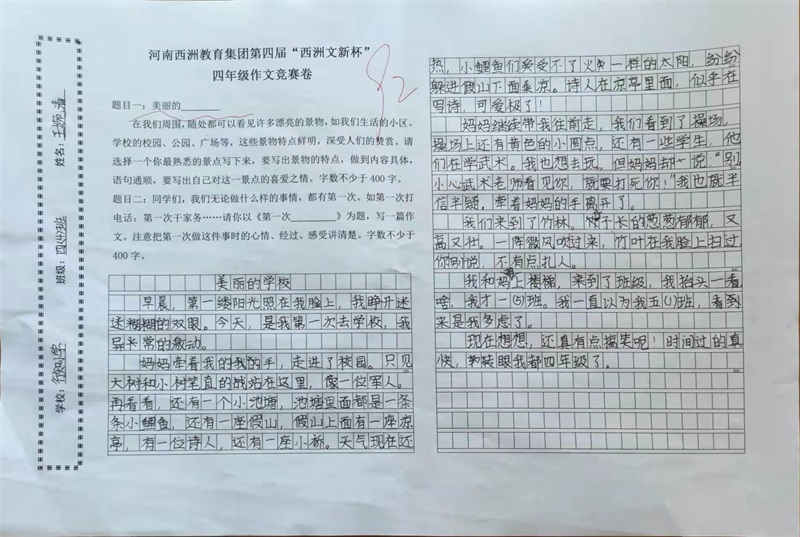 河南西洲教育集团第四届“西洲文新杯”
四年级作文竞赛卷
92
题目一：美丽的______
在我们周围，随处都可以看见许多漂亮的景物，如我们生活的小区、
学校的校园、公园、广场等，这些景物特点鲜明，深受人们的赞赏。请
选择一个你最熟悉的景点写下来，要写出景物的特点，做到内容具体，
语句通顺，要写出自己对这一景点的喜爱之情。字数不少于 400 字。
题目二：同学们，我们无论做什么样的事情，都有第一次。如第一次打
电话；第一次干家务……请你以《第一次______》为题，写一篇作
文。注意把第一次做这件事时的心情、经过、感受讲清楚。字数不少于
400 字。
姓名：
班级：四(4)班
学校：
美丽的学校
早晨，第一缕阳光照在我脸上，我睁开迷
迷糊糊的双眼。今天，是我第一次去学校，我
异常的激动。
妈妈牵着我的我的手，走进了校园。只见
大树和小树笔直的战站在这里，像一位军人。
再看看，还有一个小池塘，池塘里面都是一条
条小鲤鱼，还有一座假山，假山上面有一座凉
亭，有一位诗人，还有一座小桥。天气现在还
热，小鲤鱼们受受不了火一样的太阳，纷纷
躲进假山下面乘凉。诗人在凉亭里面，似乎在
写诗，可爱极了！
妈妈继续带我往前走，我们看到了操场，
操场上还有黄色的小圆点，还有一些学生，他
们在学武术。我也想去玩。但妈妈却说：“别
小心武术老师看见你，就要打死你！”我也就半
信半疑，牵着妈妈的手离开了。
我们来到了竹林。竹子长的葱葱郁郁，又
高又壮。一阵微风吹过来，竹叶在我脸上扫过
你别说，不有点扎人。
我和妈妈上楼梯，来到了班级，我抬头一看
啥，我才一(5)班。我一直以为我五(1)班，看到
来是我多虑了。
现在想想，还真有点搞笑呢！时间过的真
快，转眼我都四年级了。